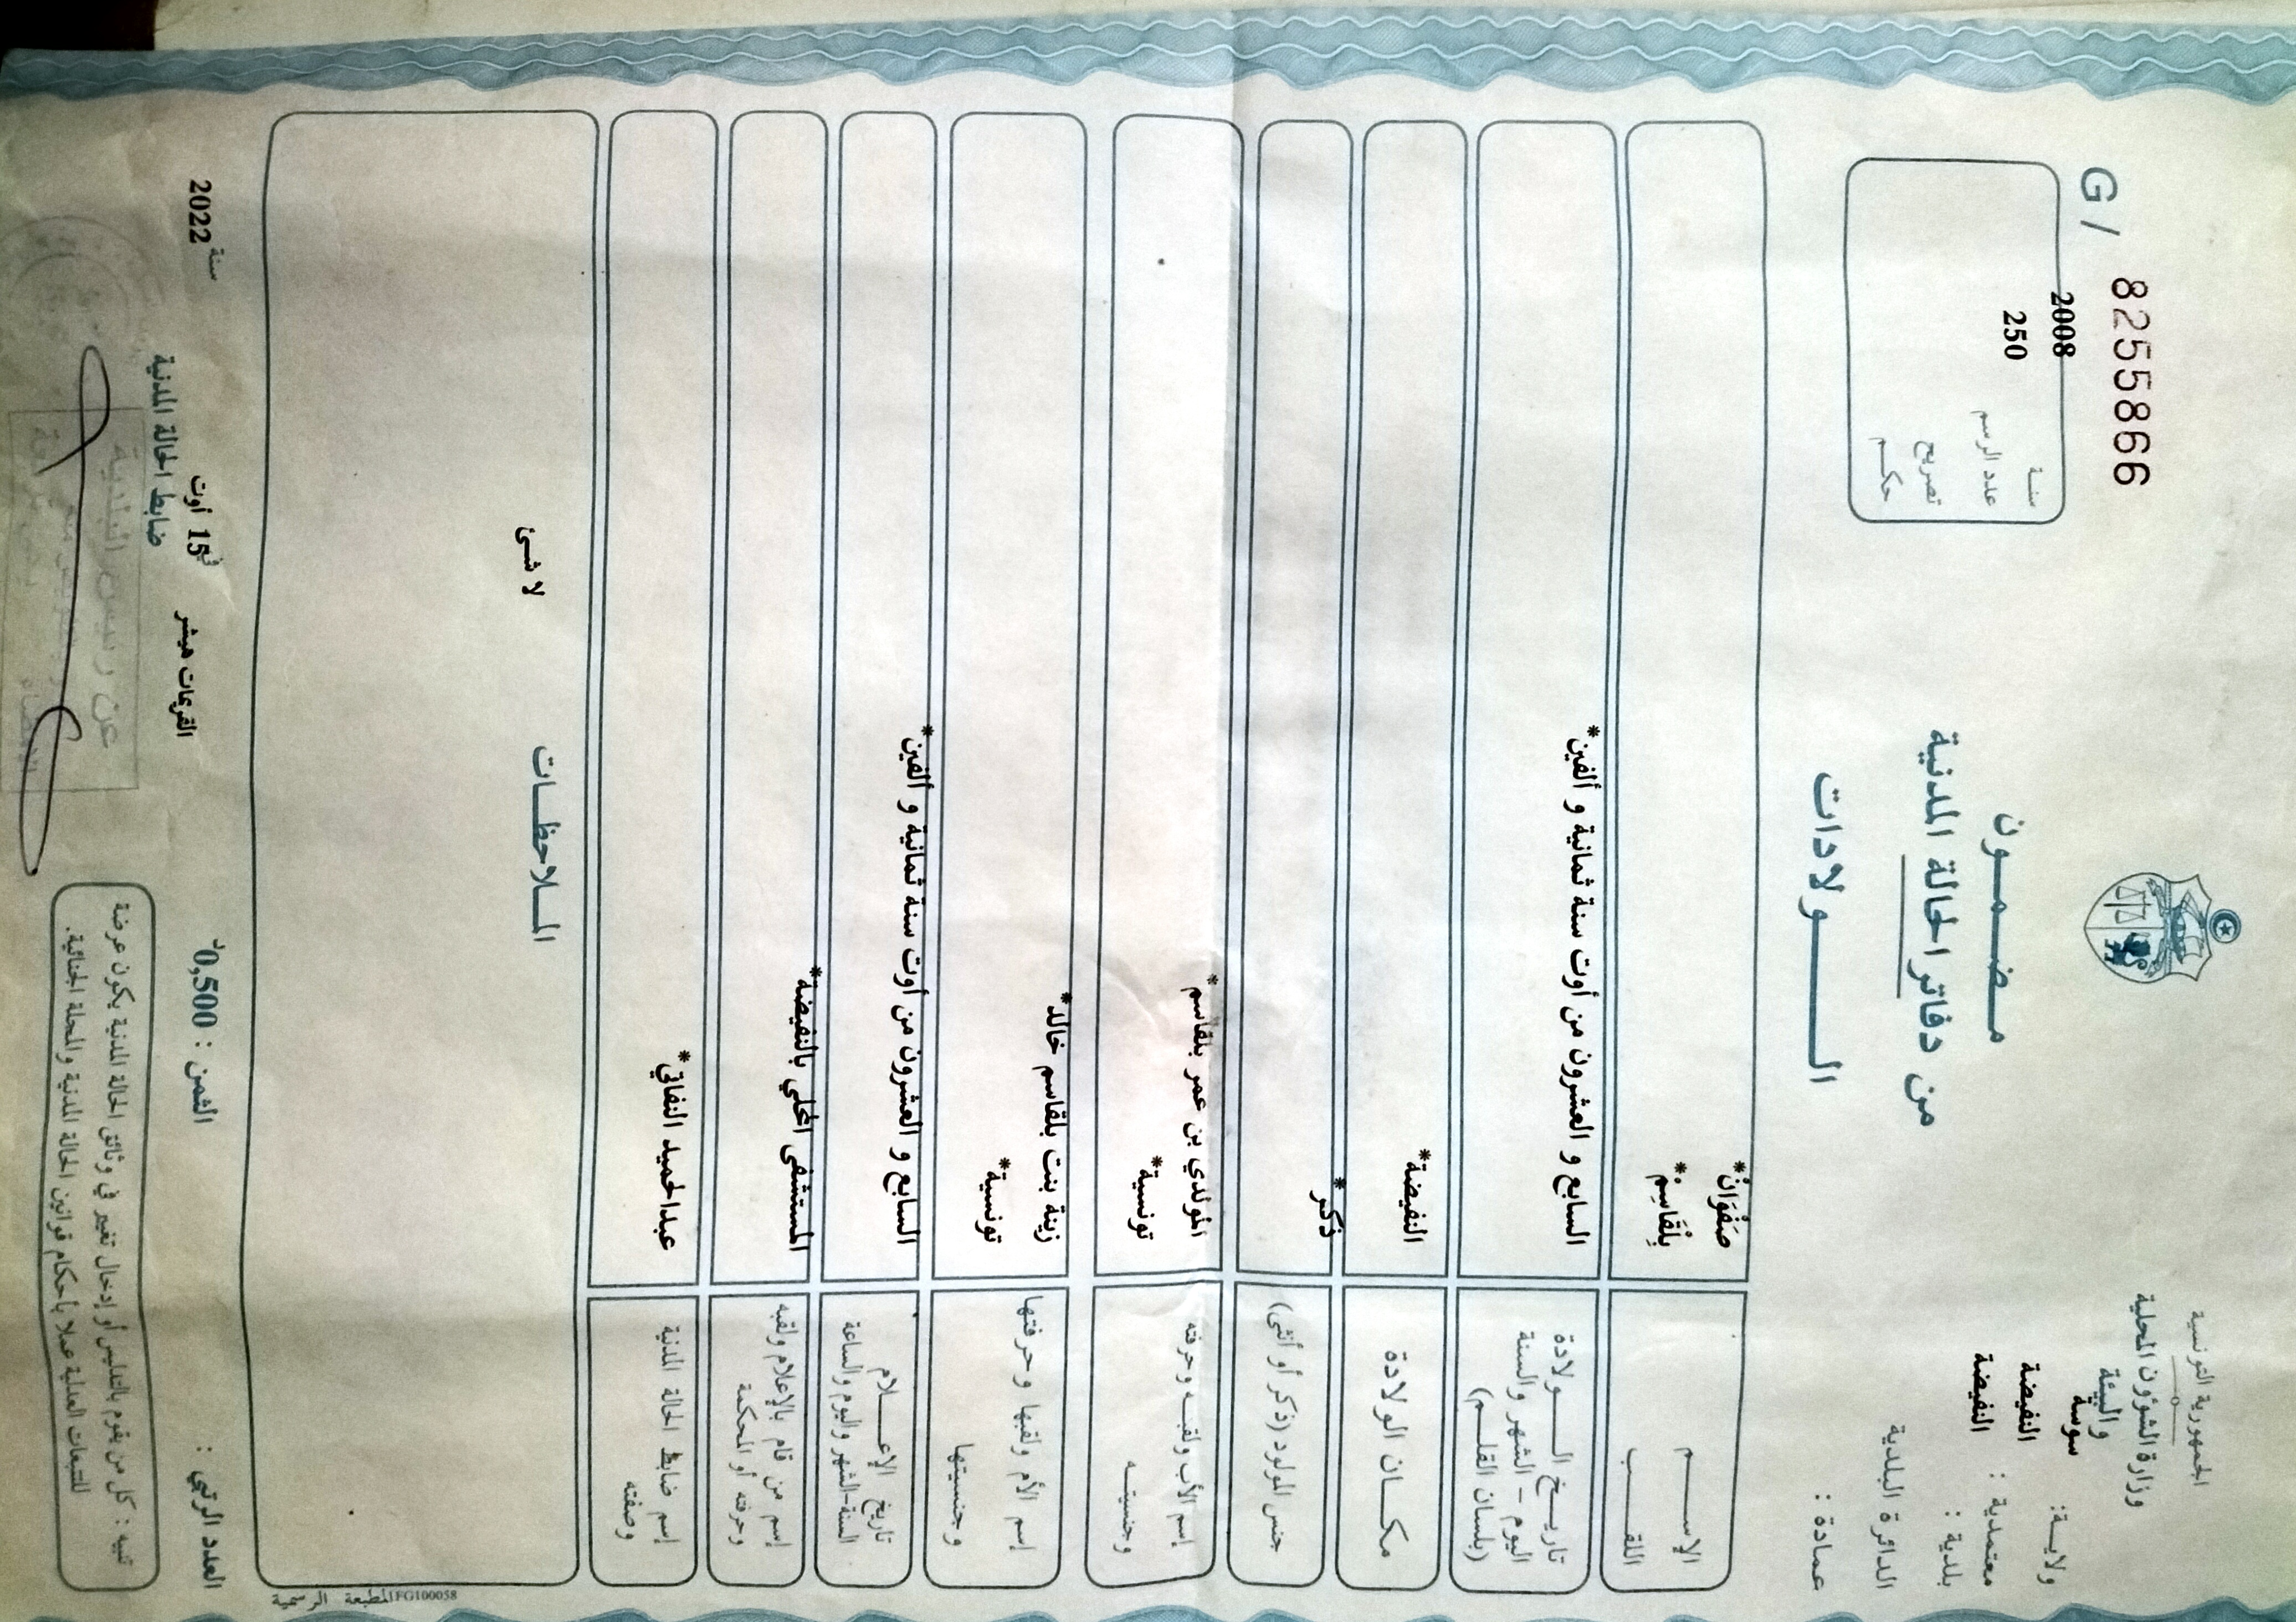 الجمهورية التونسية
وزارة الشؤون المحلية
والبيئة
ولايــة: سوسة
معتمدية : النفيضة
بلدية : النفيضة
الدائرة البلدية
عمادة :
G/ 8255866
سنـة 2008
عدد الرسم 250
تصريح
حكـم
مـضـمـون
من دفاتر الحالة المدنية
الـــولادات
الإســـم صَفْوَانْ*
اللقـــب بِلْقَاسِمْ*
تاريـخ الــولادة
اليوم - الشهر والسنة
(بلسان القلـم)
السابع و العشرون من أوت سنة ثمانية و ألفين*
مكـان الولادة النفيضة*
جنس المولود (ذكر أو أنثى) ذكر*
إسم الأب ولقبـه وحرفته المولدي بن عمر بلقاسم*
وجنسيتـه تونسية*
إسم الأم ولقبها وحرفتها زينة بنت بلقاسم خالد*
وجنسيتها تونسية*
تاريخ الإعــلام
السنة-الشهر واليوم والساعة
السابع و العشرون من أوت سنة ثمانية و ألفين*
إسم من قام بالإعلام ولقبه
وحرفته أو المحكمة
المستشفى المحلي بالنفيضة*
إسم ضابط الحالة المدنية عبدالحميد النفاتي*
وصفته
المـلاحظـات
لا شـئ
المطبعة الرسمية IFG100058
العدد الرتبي : الثمن : 0,500د القريمات هيشر في 15 أوت سنة 2022
ضابط الحالة المدنية
تنبيه : كل من يقوم بالتدليس أو إدخال تغيير في وثائق الحالة المدنية يكون عرضة
للتتبعات العدلية عملا بأحكام قوانين الحالة المدنية والمجلة الجنائية.
عن رئيس البلدية